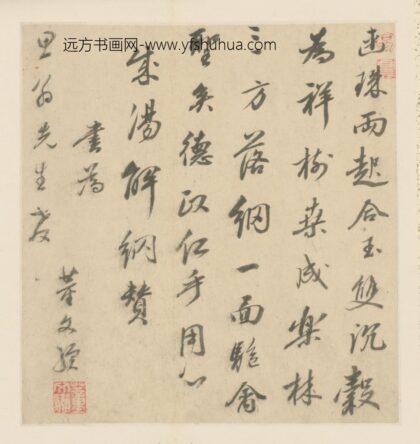 远方书画网-www.yfshuhua.com
連珠兩起合玉雙沉穀
為祥樹桑成樂林
三方落網一面驅禽
聖矣德政仁乎用心
成湯解網贊
書為
思翁先生
董文驥